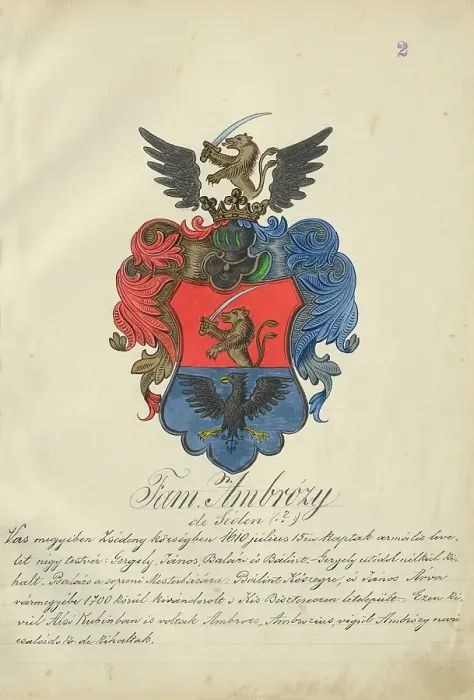 2
Fam. Ambrózy
de Séden (.?.)
Vas megyében Zsédeny községben 1610 július 15én kaptak armális leve-
let négy testvér: Gergely, János, Balázs és Bálint. - Gergely utódok nélkül ki-
halt, Balázs a soproni Mesterházára, Bálint Kőszegre, és János Árva
vármegyébe 1700 körül kivándorolt s Kis Biszterecen letelepült. Ezen ki-
vül Alsó Kubinban is voltak Ambrus, Ambrosius, végül Ambrózy nevü
családok de kihaltak.